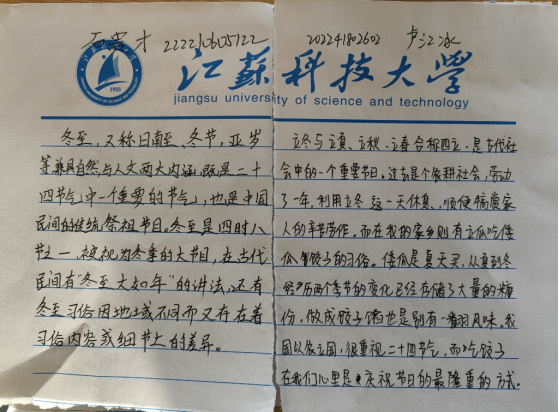 222210605122
202241802602 卢江冰
江苏科技大学
jiangsu university of science and technology
1933
冬至，又称日南至、冬节，亚岁
等兼具自然与人文两大内涵，既是二十
四节气中一个重要的节气，也是中国
民间的传统祭祖节日。冬至是四时八
节之一，被视为冬季的大节日，在古代
民间有“冬至大如年”的讲法，还有
冬至习俗因地域不同而又存在着
习俗内容或细节上的差异。
立冬与立夏、立秋、立春合称四立，是古代社
会中的一个重要节日，过去是个农耕社会，劳动
了一年，利用立冬这一天休息，顺便犒赏家
人的辛苦劳作。而在我的家乡则有立冬吃倭
瓜饺子的习俗。倭瓜是夏天买，从夏到冬
经历两个季节的变化已经存储了大量的糖
份，做成饺子馅也是别有一番风味。我
国以农立国，很重视二十四节气，而吃饺子
在我们心里是庆祝节日的最隆重的方式。